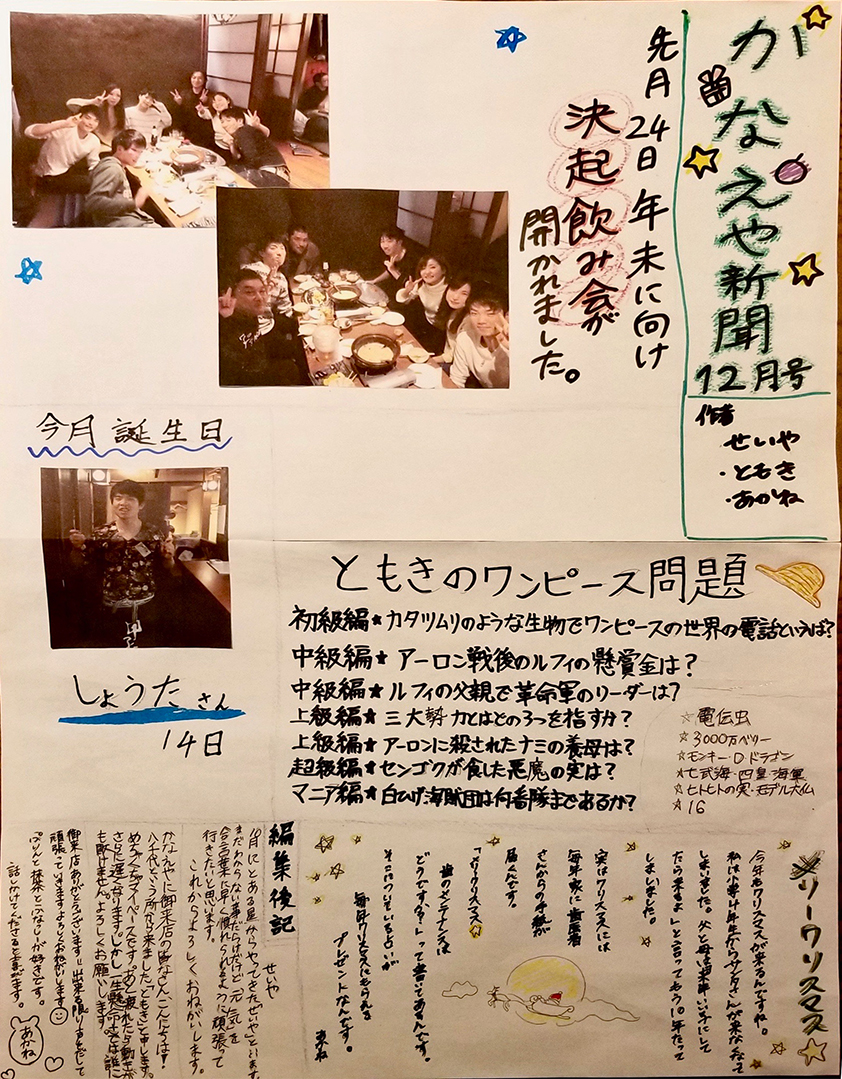 かなえや新聞
12月号
作者
せいや
・ともき
・あかね
先月24日年末に向け
決起飲み会が
開かれました。
今月誕生日
しょうたさん
14日
ともきのワンピース問題
初級編★カタツムリのような生物でワンピースの世界の電話といえば?
中級編★アーロン戦後のルフィの懸賞金は?
中級編★ルフィの父親で革命軍のリーダーは?
上級編★三大勢力とはどの3つを指すか?
上級編★アーロンに殺されたナミの養母は?
超級編★センゴクが食した悪魔の実は?
マニア編★白ひげ海賊団は何番隊まであるか?
☆電伝虫
☆3000万ベリー
☆モンキー・D・ドラゴン
☆七武海・四皇・海軍
☆ヒトヒトの実・モデル大仏
☆16
メリークリスマス
今年もクリスマスが来るんですね。
私は小学4年生からサンタさんが来なくなって
しまいました。父と母は来年いい子にして
たら来るよ」と言ってもう10年たって
しまいました。
実はクリスマスには
毎年家に歯医者
さんからの手紙が
届くんです。
「メリクリスマス
歯のメンテナンスは
どうですか?」って書いてあるんです。
そこについている占いが
毎年クリスマスにもらえる
プレゼントなんです。
あかね
編集後記
せいや
10月にとある星からやってきた"せいや"といいます。
まだわからない事だらけだけど「元気」を
合言葉に早く慣れられるように頑張って
行きたいと思います。
これからよろしくおねがいします。
かなえやに御来店の皆さん、こんにちは!
八千代という所から来ました「ともき」と申します。
めちゃくちゃマイペースです。あと疲れたら動きが
さらに遅くなります。しかし一生懸命さでは誰に
も負けません。よろしくお願いします。
御来店ありがとうございます!!出来る限り力をだして
頑張っていきますよろしくおねがいします
ぷりんと抹茶とにゃんこが好きです。
話しかけてくださると喜びます。
あかね